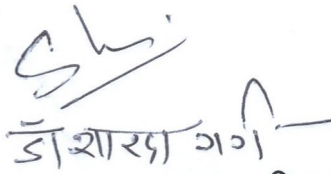 डॉ शारदा गर्ग